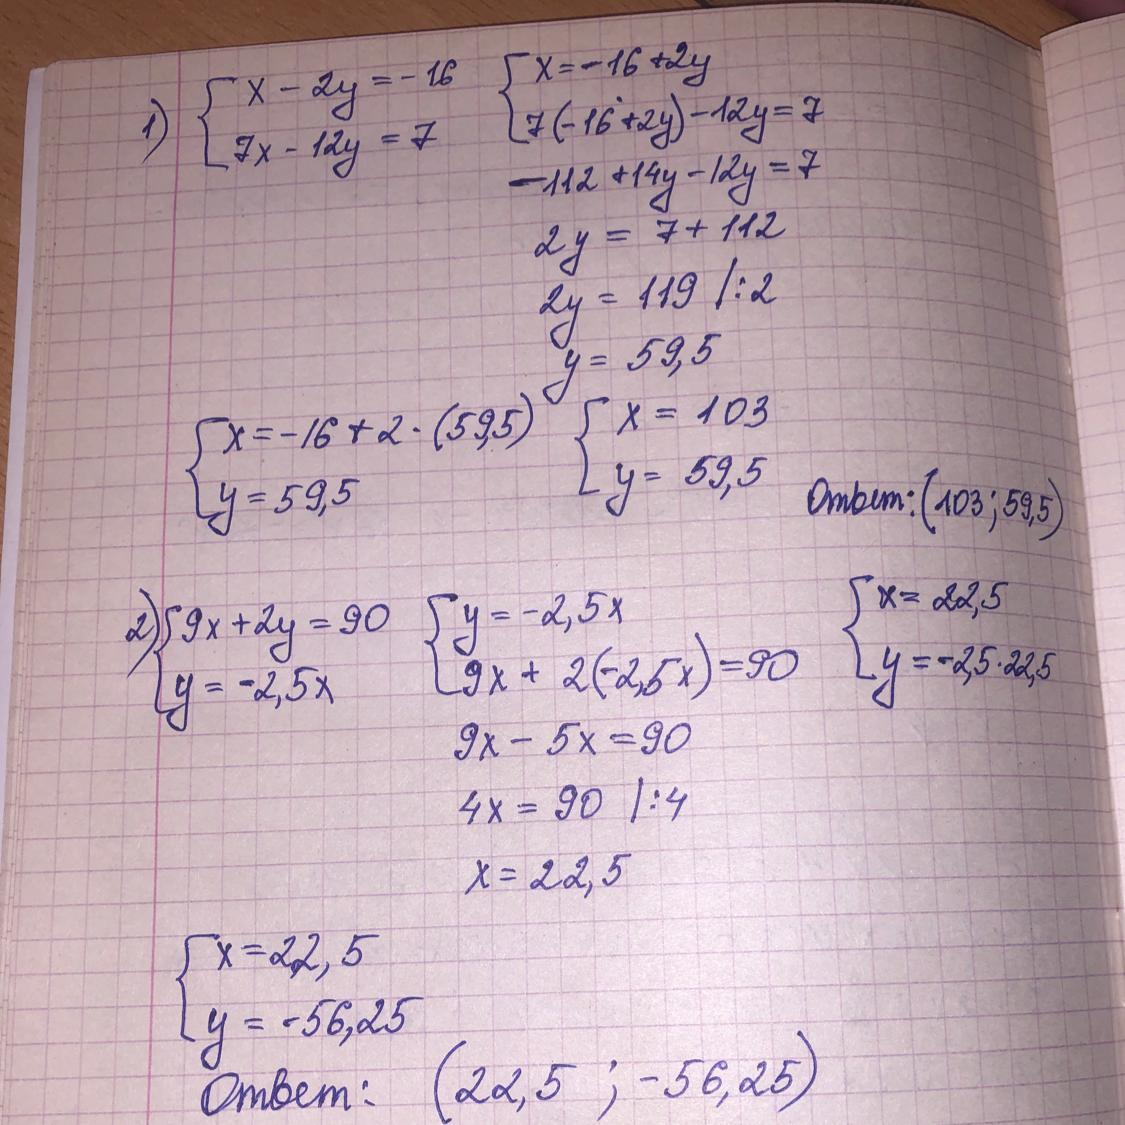 1) { x - 2y = -16
7x - 12y = 7
{ x = -16 + 2y
7(-16 + 2y) - 12y = 7
-112 + 14y - 12y = 7
2y = 7 + 112
2y = 119 /:2
y = 59,5
{ x = -16 + 2 · (59,5)
y = 59,5
{ x = 103
y = 59,5
Ответ: (103; 59,5)
2) { 9x + 2y = 90
y = -2,5x
{ y = -2,5x
9x + 2(-2,5x) = 90
9x - 5x = 90
4x = 90 /:4
x = 22,5
{ x = 22,5
y = -2,5·22,5
{ x = 22,5
y = -56,25
Ответ: (22,5 ; -56,25)